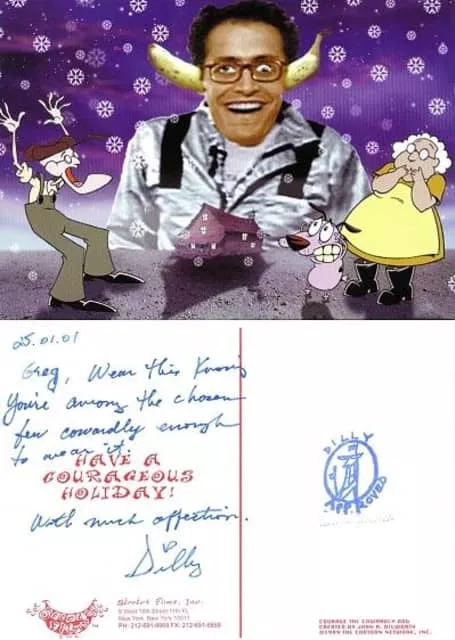 25.01.01
Greg, Wear this Knowing
You're among the chosen
few cowardly enough
to wear it.
HAVE A
COURAGEOUS
HOLIDAY!
With much affection.
Dilly
DILLY
APPROVED
Stretch Films, Inc.
New York, New York 10011
COURAGE THE COWARDLY DOG
CREATED BY JOHN R. DILWORTH
©1999 THE CARTOON NETWORK, INC.